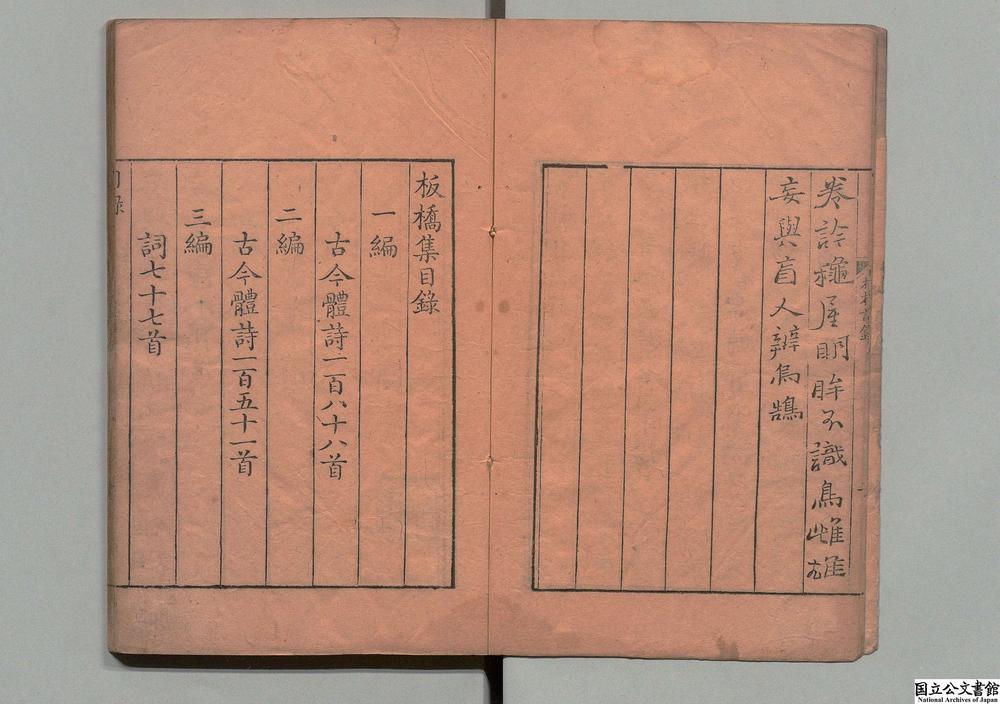 屋朙眸不識鳥雌雄
妄與盲人辨烏鵠
板橋集目錄
一編
古今體詩一百八十八首
二編
古今體詩一百五十一首
三編
詞七十七首
目錄
国立公文書館
National Archives of Japan